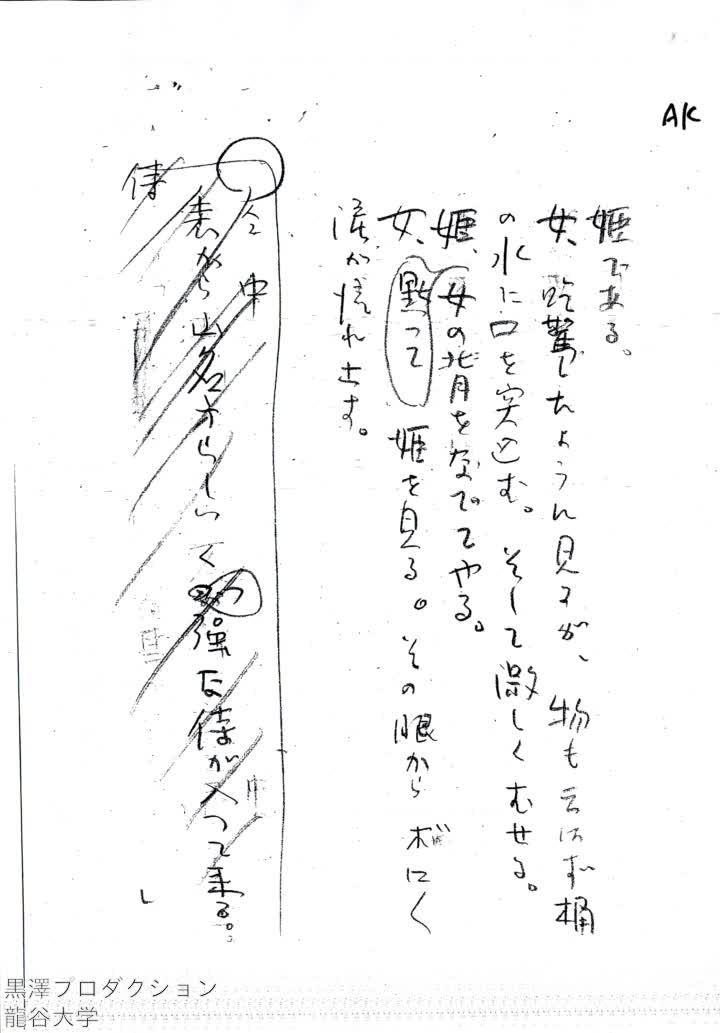 AK
姫である。
女、吃驚したように見るが、物も云はず桶
の水に口を突込む。そして激しくむせる。
姫、女の背をなでてやる。
女、黙って姫を見る。その眼から
涙が流れ出す。
侍
表から山名方らしい
強な侍が入って来る。
黒澤プロダクション
龍谷大学